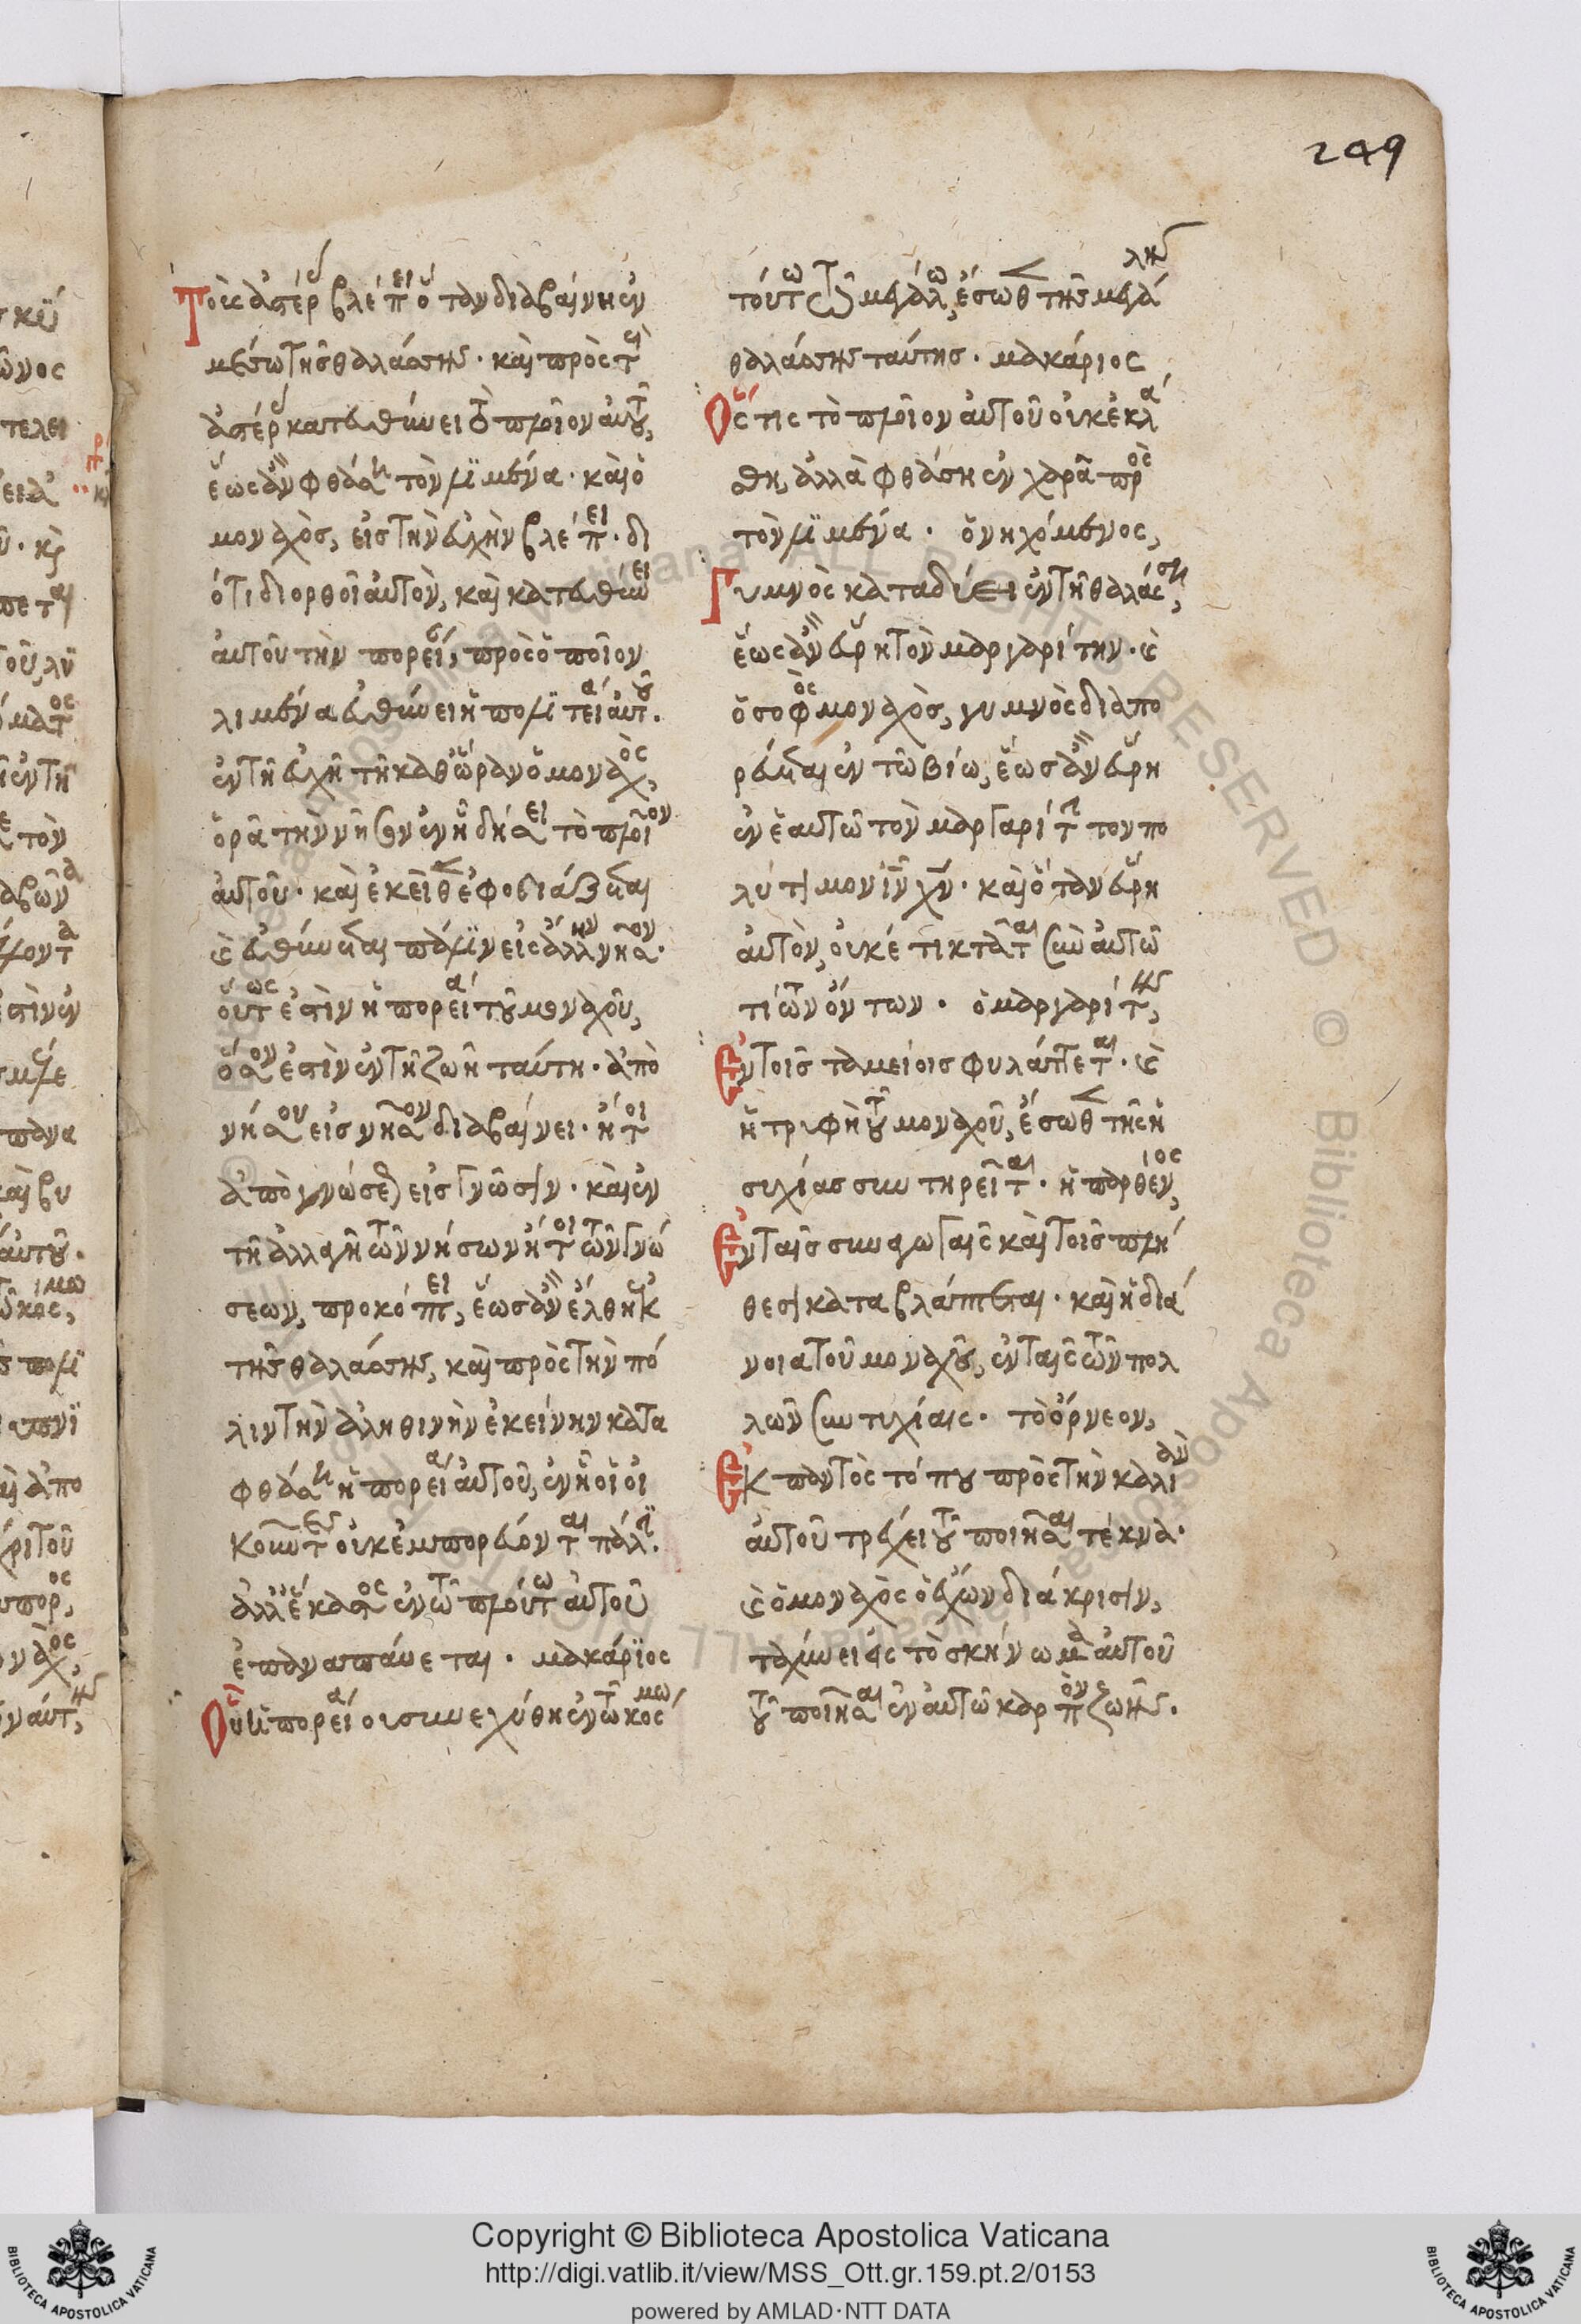 249
Τοῖς ἀστέρ βλέπει ὅταν διαβαίνη ἐν
μέσω τῆς θαλάσσης · καὶ πρὸς τ
ἀστέρ κατευθύνει τὸ πλοῖον αὐτοῦ,
ἕως ἂν φθάση τὸν λιμένα · καὶ ὁ
μοναχὸς, εἰς τὴν εὐχὴν βλέπει · δι
ότι διορθοῖ αὐτὸν, καὶ κατευθύνει
αὐτοῦ τὴν πορεί, πρὸς ὁποῖον
λιμένα εὐθύνει ἡ πολιτεία αὐτοῦ.
ἐν τῆ εὐχῆ τῆ καθ᾽ὥραν ὁ μοναχὸς,
ὁρᾶ τὴν νῆσον ἐν ἧ δήσει τὸ πλοῖον
αὐτοῦ · καὶ ἐκεῖθεν ἐφοδιάζεται
καὶ εὐθύνεται πάλιν εἰς ἄλλην νῆσον ·
οὕτως ἐστὶν ἡ πορεία τοῦ μοναχοῦ,
ὅσον ἐστὶν ἐν τῆ ζωῆ ταύτη · ἀπὸ
νήσου εἰς νῆσον διαβαίνει · ἤτοι
ἀπὸ γνώσεως εἰς γνῶσιν · καὶ ἐν
τῆ ἀλλαγῆ τῶν νήσων ἤτοι τῶν γνώ
σεων, προκόπτει, ἕως ἂν ἐξέλθη ἐκ
τῆς θαλάσσης, καὶ πρὸς τὴν πό
λιν τὴν ἀληθινὴν ἐκείνην κατα
φθάση ἡ πορεία αὐτοῦ, ἐν ἧ οἱ οἰ
κοῦντες οὐκ ἐμπορεύονται πάλιν.
ἀλλ᾽ἕκαστος ἐν τῶ πλούτω αὐτοῦ
ἐπαναπαύεται · μακάριος
Οὗ ἡ πορεία οὐ συνεχύθη ἐν τῶ κόσμω
τούτω τῶ μεγάλω, ἔσωθεν τῆς μεγάλης
θαλάσσης ταύτης · μακάριος
Ὅςτις τὸ πλοῖον αὐτοῦ οὐκ ἐκλά
σθη, ἀλλὰ φθάση ἐν χαρᾶ πρὸς
τὸν λιμένα · ὁ νηχόμενος,
Γυμνὸς καταδύει ἐν τῆ θαλάσση,
ἕως ἂν εὕρη τὸν μαργαρίτην · καὶ
ὁ σοφὸς μοναχὸς, γυμνὸς διαπο
ρεύεται ἐν τῶ βίω, ἕως ἂν εὕρη
ἐν ἑαυτῶ τὸν μαργαρίτην τον πο
λύτιμον ἰν χν · καὶ ὅταν εὕρη
αὐτὸν, οὐκέτι κτᾶται σὺν αὐτῶ
τὶ τῶν ὄντων · ὁ μαργαρίτης,
Ἐν τοῖς ταμείοις φυλάττεται · καὶ
ἡ τρυφὴ τοῦ μοναχοῦ, ἔσωθεν τῆς ἡ
συχίας συντηρεῖται · ἡ παρθένος,
Ἐν ταῖς συναγωγαῖς καὶ τοῖς πλή
θεσι καταβλάπτεται · καὶ ἡ διά
νοια τοῦ μοναχοῦ, ἐν ταῖς τῶν πολ
λῶν συντυχίαις · τὸ ὄρνεον,
Ἐκ παντὸς τόπου πρὸς τὴν καλιὰν
αὐτοῦ τρέχει τοῦ ποιῆσαι τέκνα ·
καὶ ὁ μοναχὸς ὁ ἔχων διάκρισιν,
ταχύνει εἰς τὸ σκήνωμα αὐτοῦ
τοῦ ποιῆσαι ἐν αὐτῶ καρπὸν ζωῆς.
Copyright © Biblioteca Apostolica Vaticana
http://digi.vatlib.it/view/MSS_Ott.gr.159.pt.2/0153
powered by AMLAD·NTT DATA